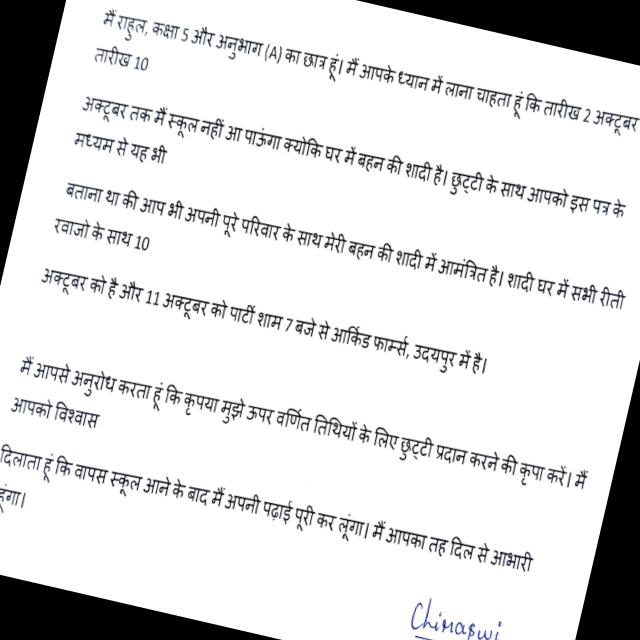 मैं राहुल, कक्षा 5 और अनुभाग (A) का छात्र हूं। मैं आपके ध्यान में लाना चाहता हूं कि तारीख 2 अक्टूबर
तारीख 10
अक्टूबर तक मैं स्कूल नहीं आ पाऊंगा क्योकि घर में बहन की शादी है। छुट्टी के साथ आपको इस पत्र के
मध्यम से यह भी
बताना था की आप भी अपनी पूरे परिवार के साथ मेरी बहन की शादी में आमंत्रित है। शादी घर में सभी रीती
रवाजो के साथ 10
अक्टूबर को है और 11 अक्टूबर को पार्टी शाम 7 बजे से आर्किड फार्म्स, उदयपुर में है।
मैं आपसे अनुरोध करता हूं कि कृपया मुझे ऊपर वर्णित तिथियों के लिए छुट्टी प्रदान करने की कृपा करें। मैं
आपको विश्वास
दिलाता हूं कि वापस स्कूल आने के बाद मैं अपनी पढ़ाई पूरी कर लूंगा। मैं आपका तह दिल से आभारी
हूंगा।